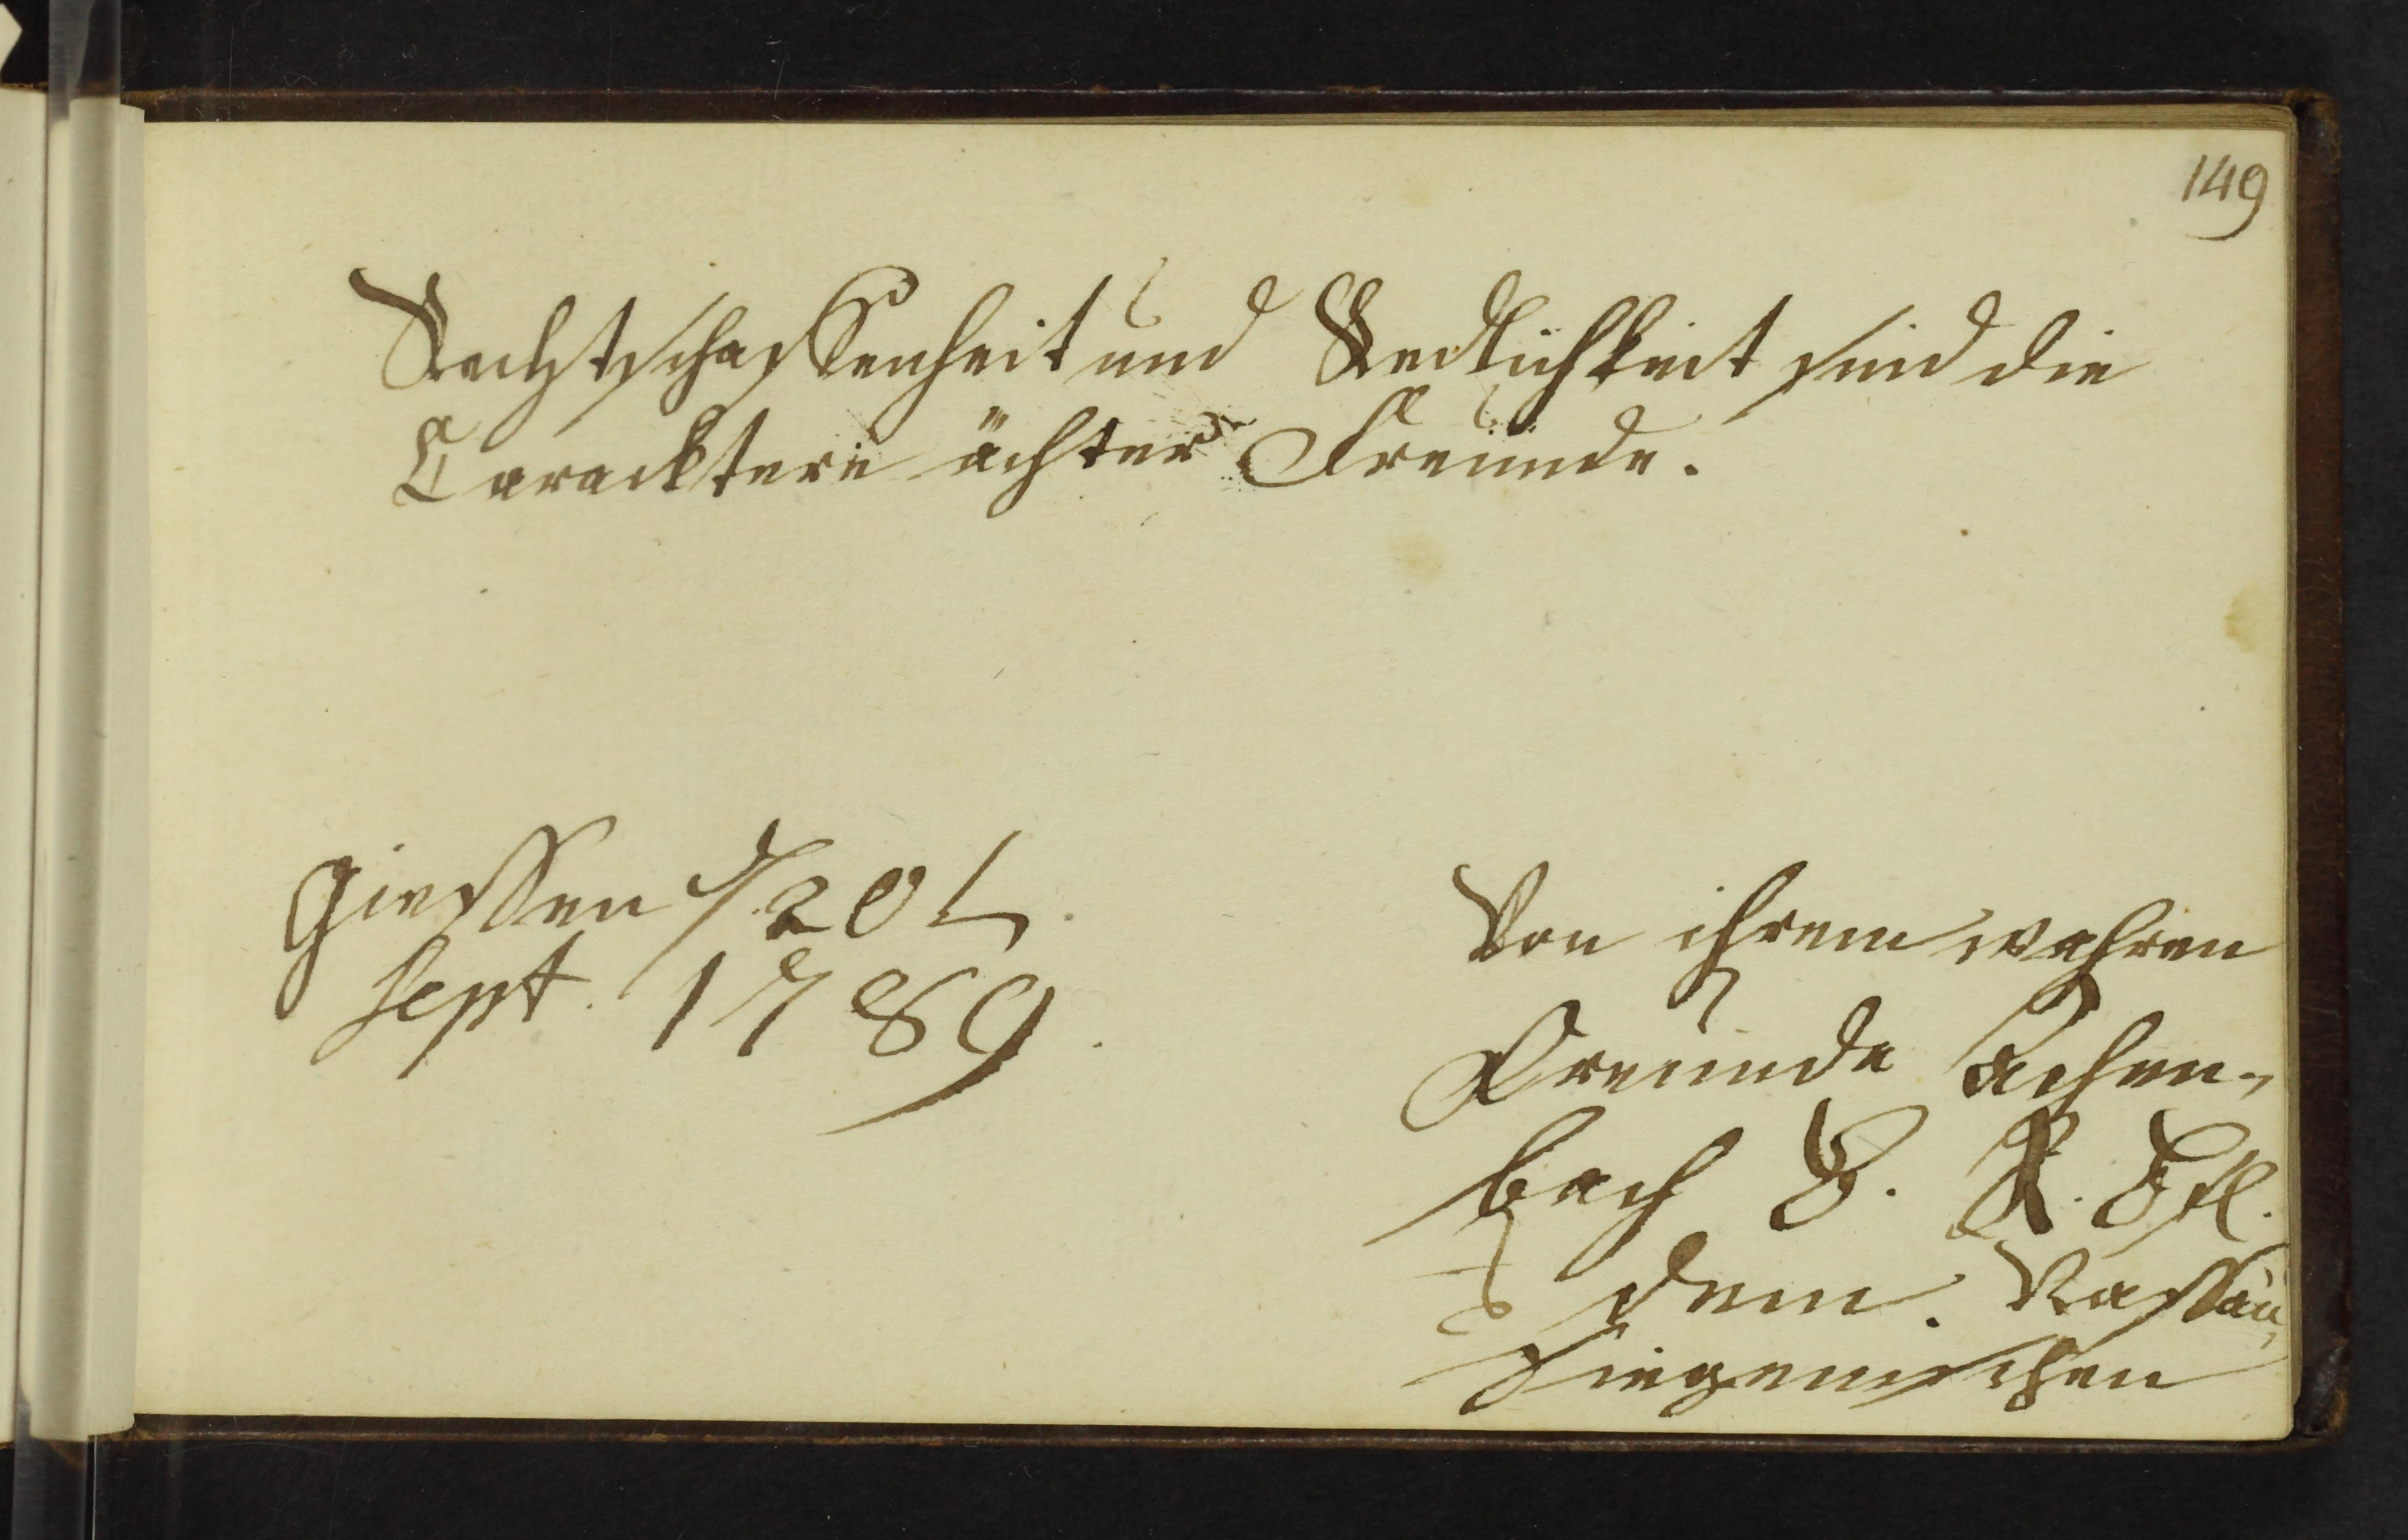 149
Rechtschaffenheit und Redlichkeit sind die
Carackters ächter Freunde.
Giessen d 20t
Sept. 1789.
Von ihrem wahren
Freunde Achen-
bach
dem. Nassau
Siegenischen